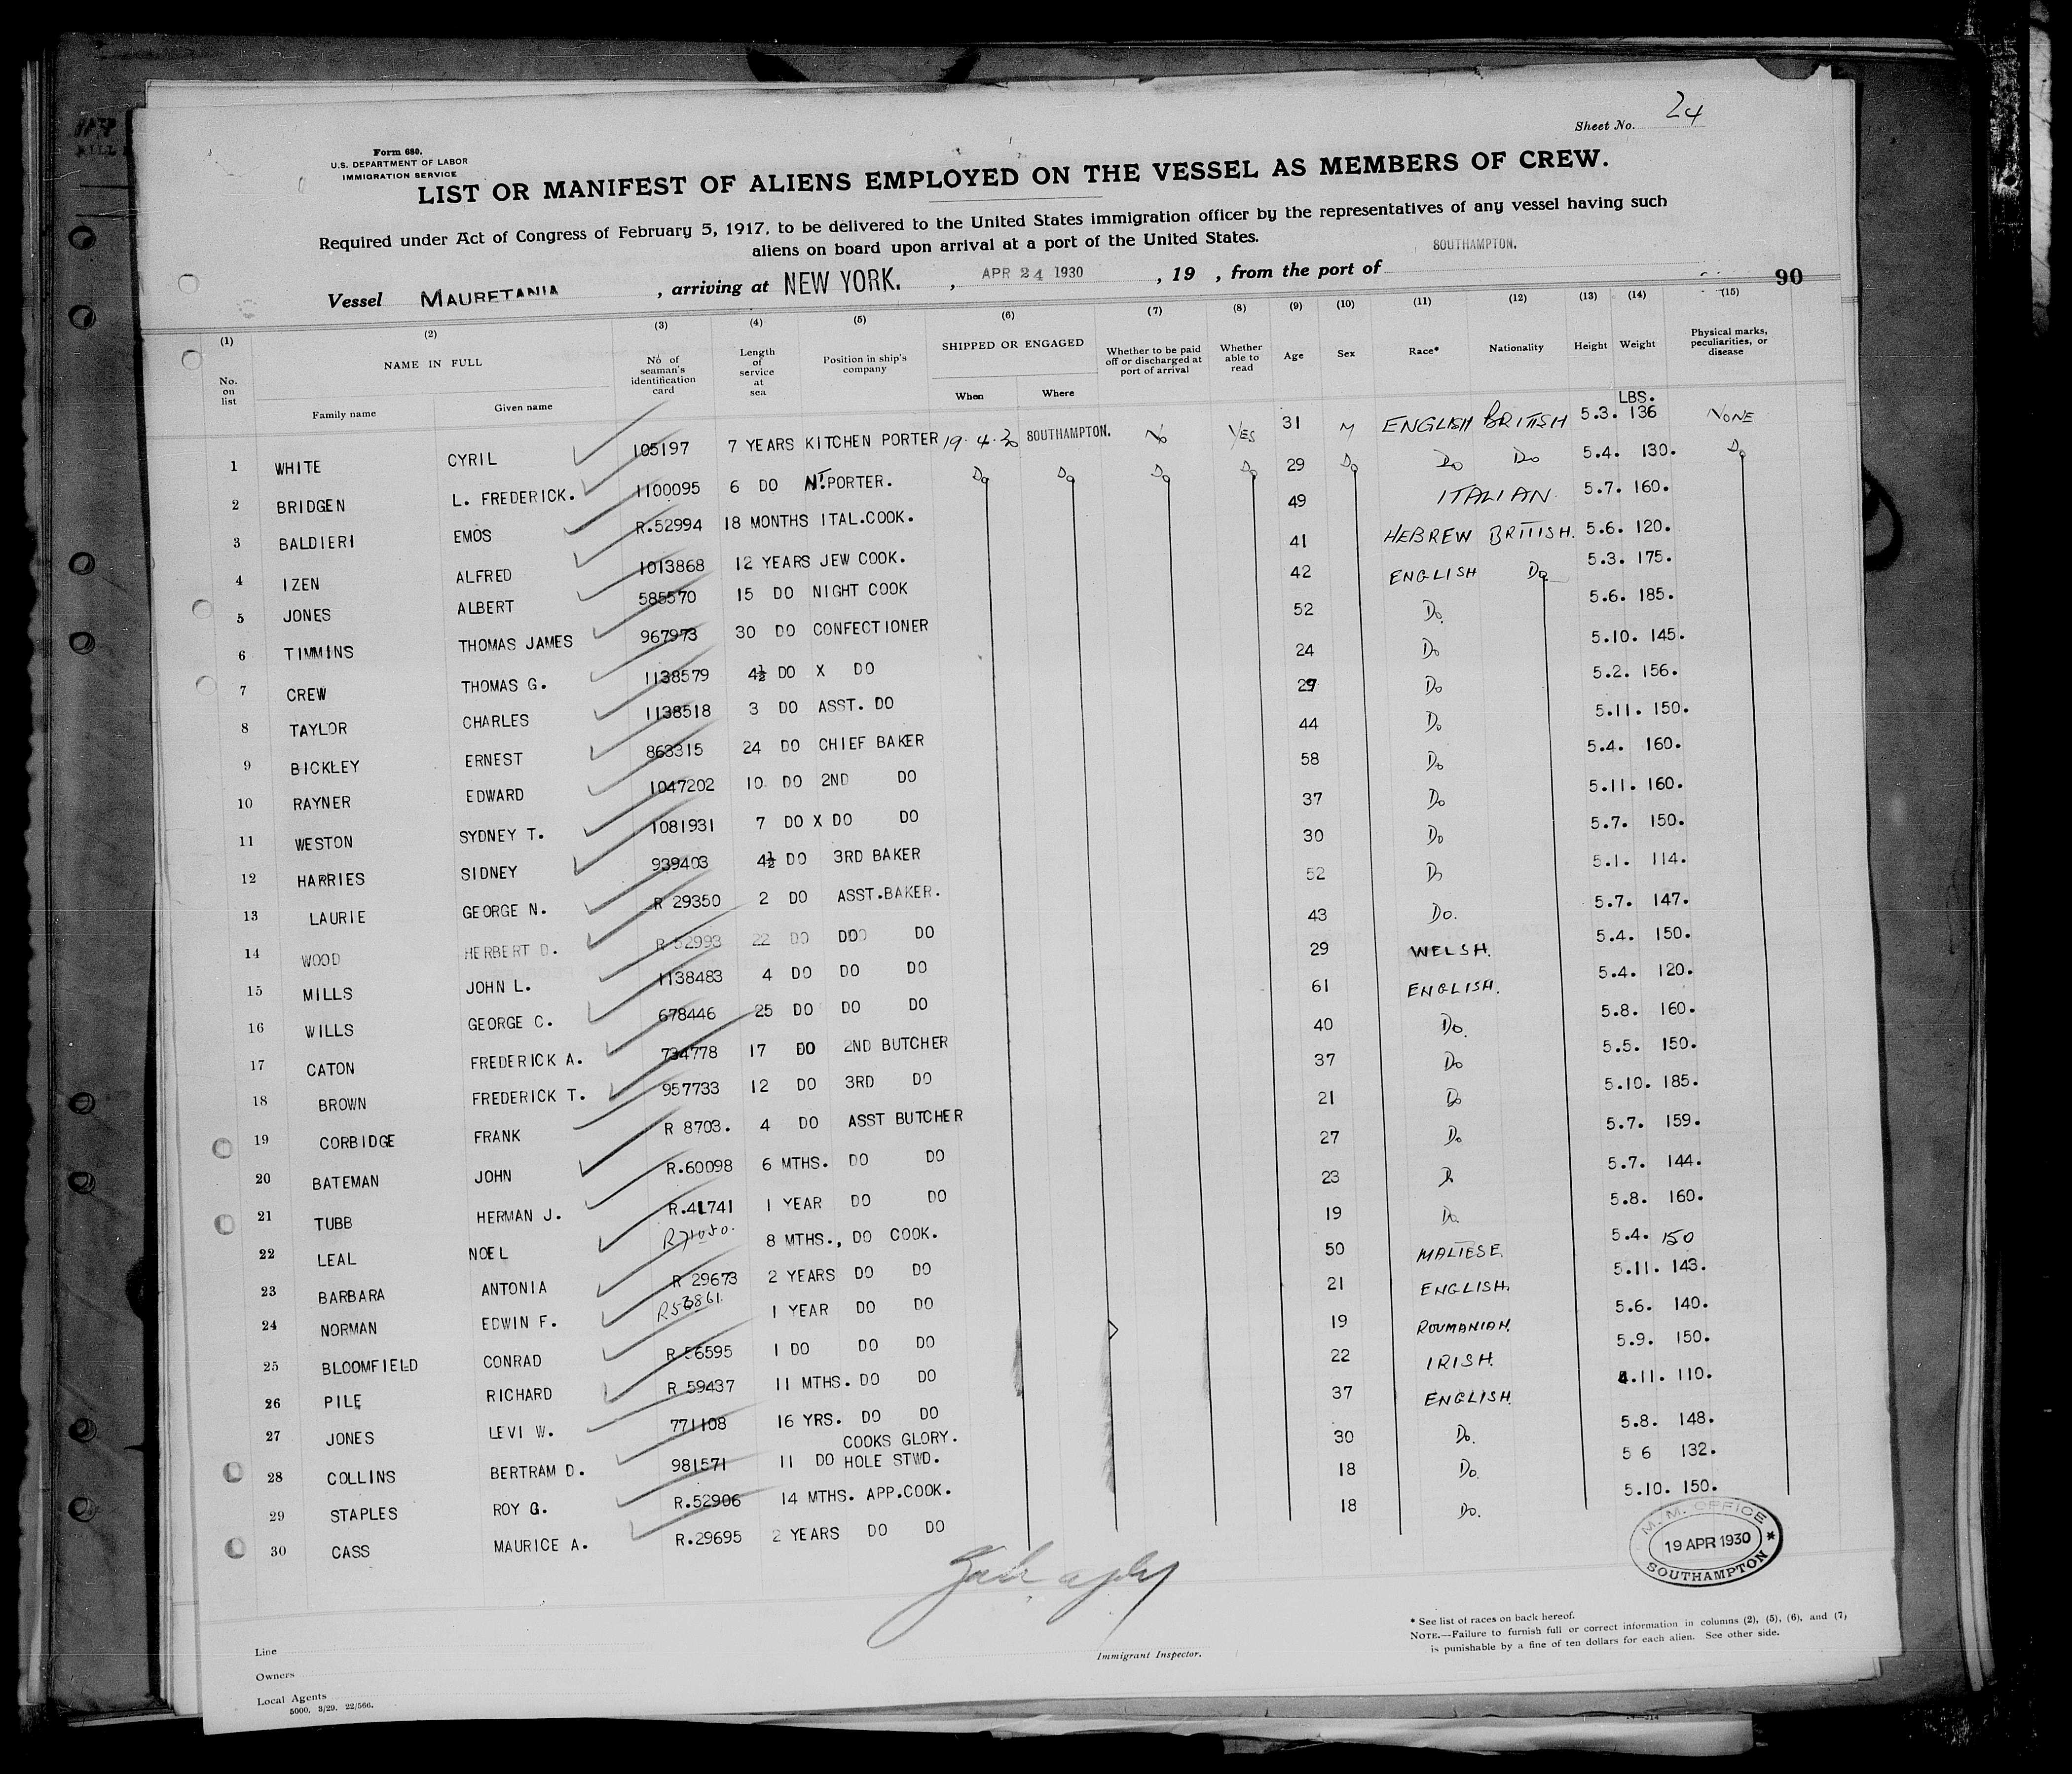 Sheet No. 24
Form 680.
U.S. DEPARTMENT OF LABOR
IMMIGRATION SERVICE
LIST OR MANIFEST OF ALIENS EMPLOYED ON THE VESSEL AS MEMBERS OF CREW.
Required under Act of Congress of February 5, 1917, to be delivered to the United States immigration officer by the representatives of any vessel having such
aliens on board upon arrival at a port of the United States.
Vessel MAURETANIA, arriving at NEW YORK. , APR 24 1930 , 19 , from the port of SOUTHAMPTON.
90
(1) (2) (3) (4) (5) (6) (7) (8) (9) (10) (11) (12) (13) (14) (15)
No. on list NAME IN FULL Family name Given name No. of seaman's identification card Length of service at sea Position in ship's company SHIPPED OR ENGAGED When Where Whether to be paid off or discharged at port of arrival Whether able to read Age Sex Race* Nationality Height Weight Physical marks, peculiarities, or disease
LBS.
1 WHITE CYRIL 105197 7 YEARS KITCHEN PORTER 19.4.30 SOUTHAMPTON. No YES 31 M ENGLISH BRITISH 5.3. 136 NONE
2 BRIDGEN L. FREDERICK. 1100095 6 DO NT.PORTER. Do Do Do Do 29 Do Do Do 5.4. 130. Do
3 BALDIERI EMOS R.52994 18 MONTHS ITAL.COOK. 49 ITALIAN. 5.7. 160.
4 IZEN ALFRED 1013868 12 YEARS JEW COOK. 41 HEBREW BRITISH. 5.6. 120.
5 JONES ALBERT 585570 15 DO NIGHT COOK 42 ENGLISH Do 5.3. 175.
6 TIMMINS THOMAS JAMES 967973 30 DO CONFECTIONER 52 Do. 5.6. 185.
7 CREW THOMAS G. 1138579 4½ DO X DO 24 Do 5.10. 145.
8 TAYLOR CHARLES 1138518 3 DO ASST. DO 29 Do 5.2. 156.
9 BICKLEY ERNEST 863315 24 DO CHIEF BAKER 44 Do 5.11. 150.
10 RAYNER EDWARD 1047202 10 DO 2ND DO 58 Do 5.4. 160.
11 WESTON SYDNEY T. 1081931 7 DO X DO DO 37 Do 5.11. 160.
12 HARRIES SIDNEY 939403 4½ DO 3RD BAKER 30 Do 5.7. 150.
13 LAURIE GEORGE N. R 29350 2 DO ASST.BAKER. 52 Do 5.1. 114.
14 WOOD HERBERT D. R 52993 22 DO DO DO 43 Do. 5.7. 147.
15 MILLS JOHN L. 1138483 4 DO DO DO 29 WELSH. 5.4. 150.
16 WILLS GEORGE C. 678446 25 DO DO DO 61 ENGLISH. 5.4. 120.
17 CATON FREDERICK A. 734778 17 DO 2ND BUTCHER 40 Do. 5.8. 160.
18 BROWN FREDERICK T. 957733 12 DO 3RD DO 37 Do 5.5. 150.
19 CORBIDGE FRANK R 8703. 4 DO ASST BUTCHER 21 Do 5.10. 185.
20 BATEMAN JOHN R.60098 6 MTHS. DO DO 27 Do 5.7. 159.
21 TUBB HERMAN J. R.41741 1 YEAR DO DO 23 Do 5.7. 144.
22 LEAL NOEL R71050. 8 MTHS., DO COOK. 19 Do. 5.8. 160.
23 BARBARA ANTONIA R 29673 2 YEARS DO DO 50 MALTESE. 5.4. 150
24 NORMAN EDWIN F. R53861. 1 YEAR DO DO 21 ENGLISH. 5.11. 143.
25 BLOOMFIELD CONRAD R 56595 1 DO DO DO 19 ROUMANIAN. 5.6. 140.
26 PILE RICHARD R 59437 11 MTHS. DO DO 22 IRISH. 5.9. 150.
27 JONES LEVI W. 771108 16 YRS. DO DO 37 ENGLISH. 4.11. 110.
28 COLLINS BERTRAM D. 981571 11 DO COOKS GLORY. HOLE STWD. 30 Do. 5.8. 148.
29 STAPLES ROY G. R.52906 14 MTHS. APP.COOK. 18 Do. 5 6 132.
30 CASS MAURICE A. R.29695 2 YEARS DO DO 18 Do. 5.10. 150.
M.M. OFFICE
19 APR 1930
SOUTHAMPTON
* See list of races on back hereof.
NOTE.—Failure to furnish full or correct information in columns (2), (5), (6), and (7)
is punishable by a fine of ten dollars for each alien. See other side.
Line
Owners
Local Agents
5000. 3/29. 22/566.
Immigrant Inspector.